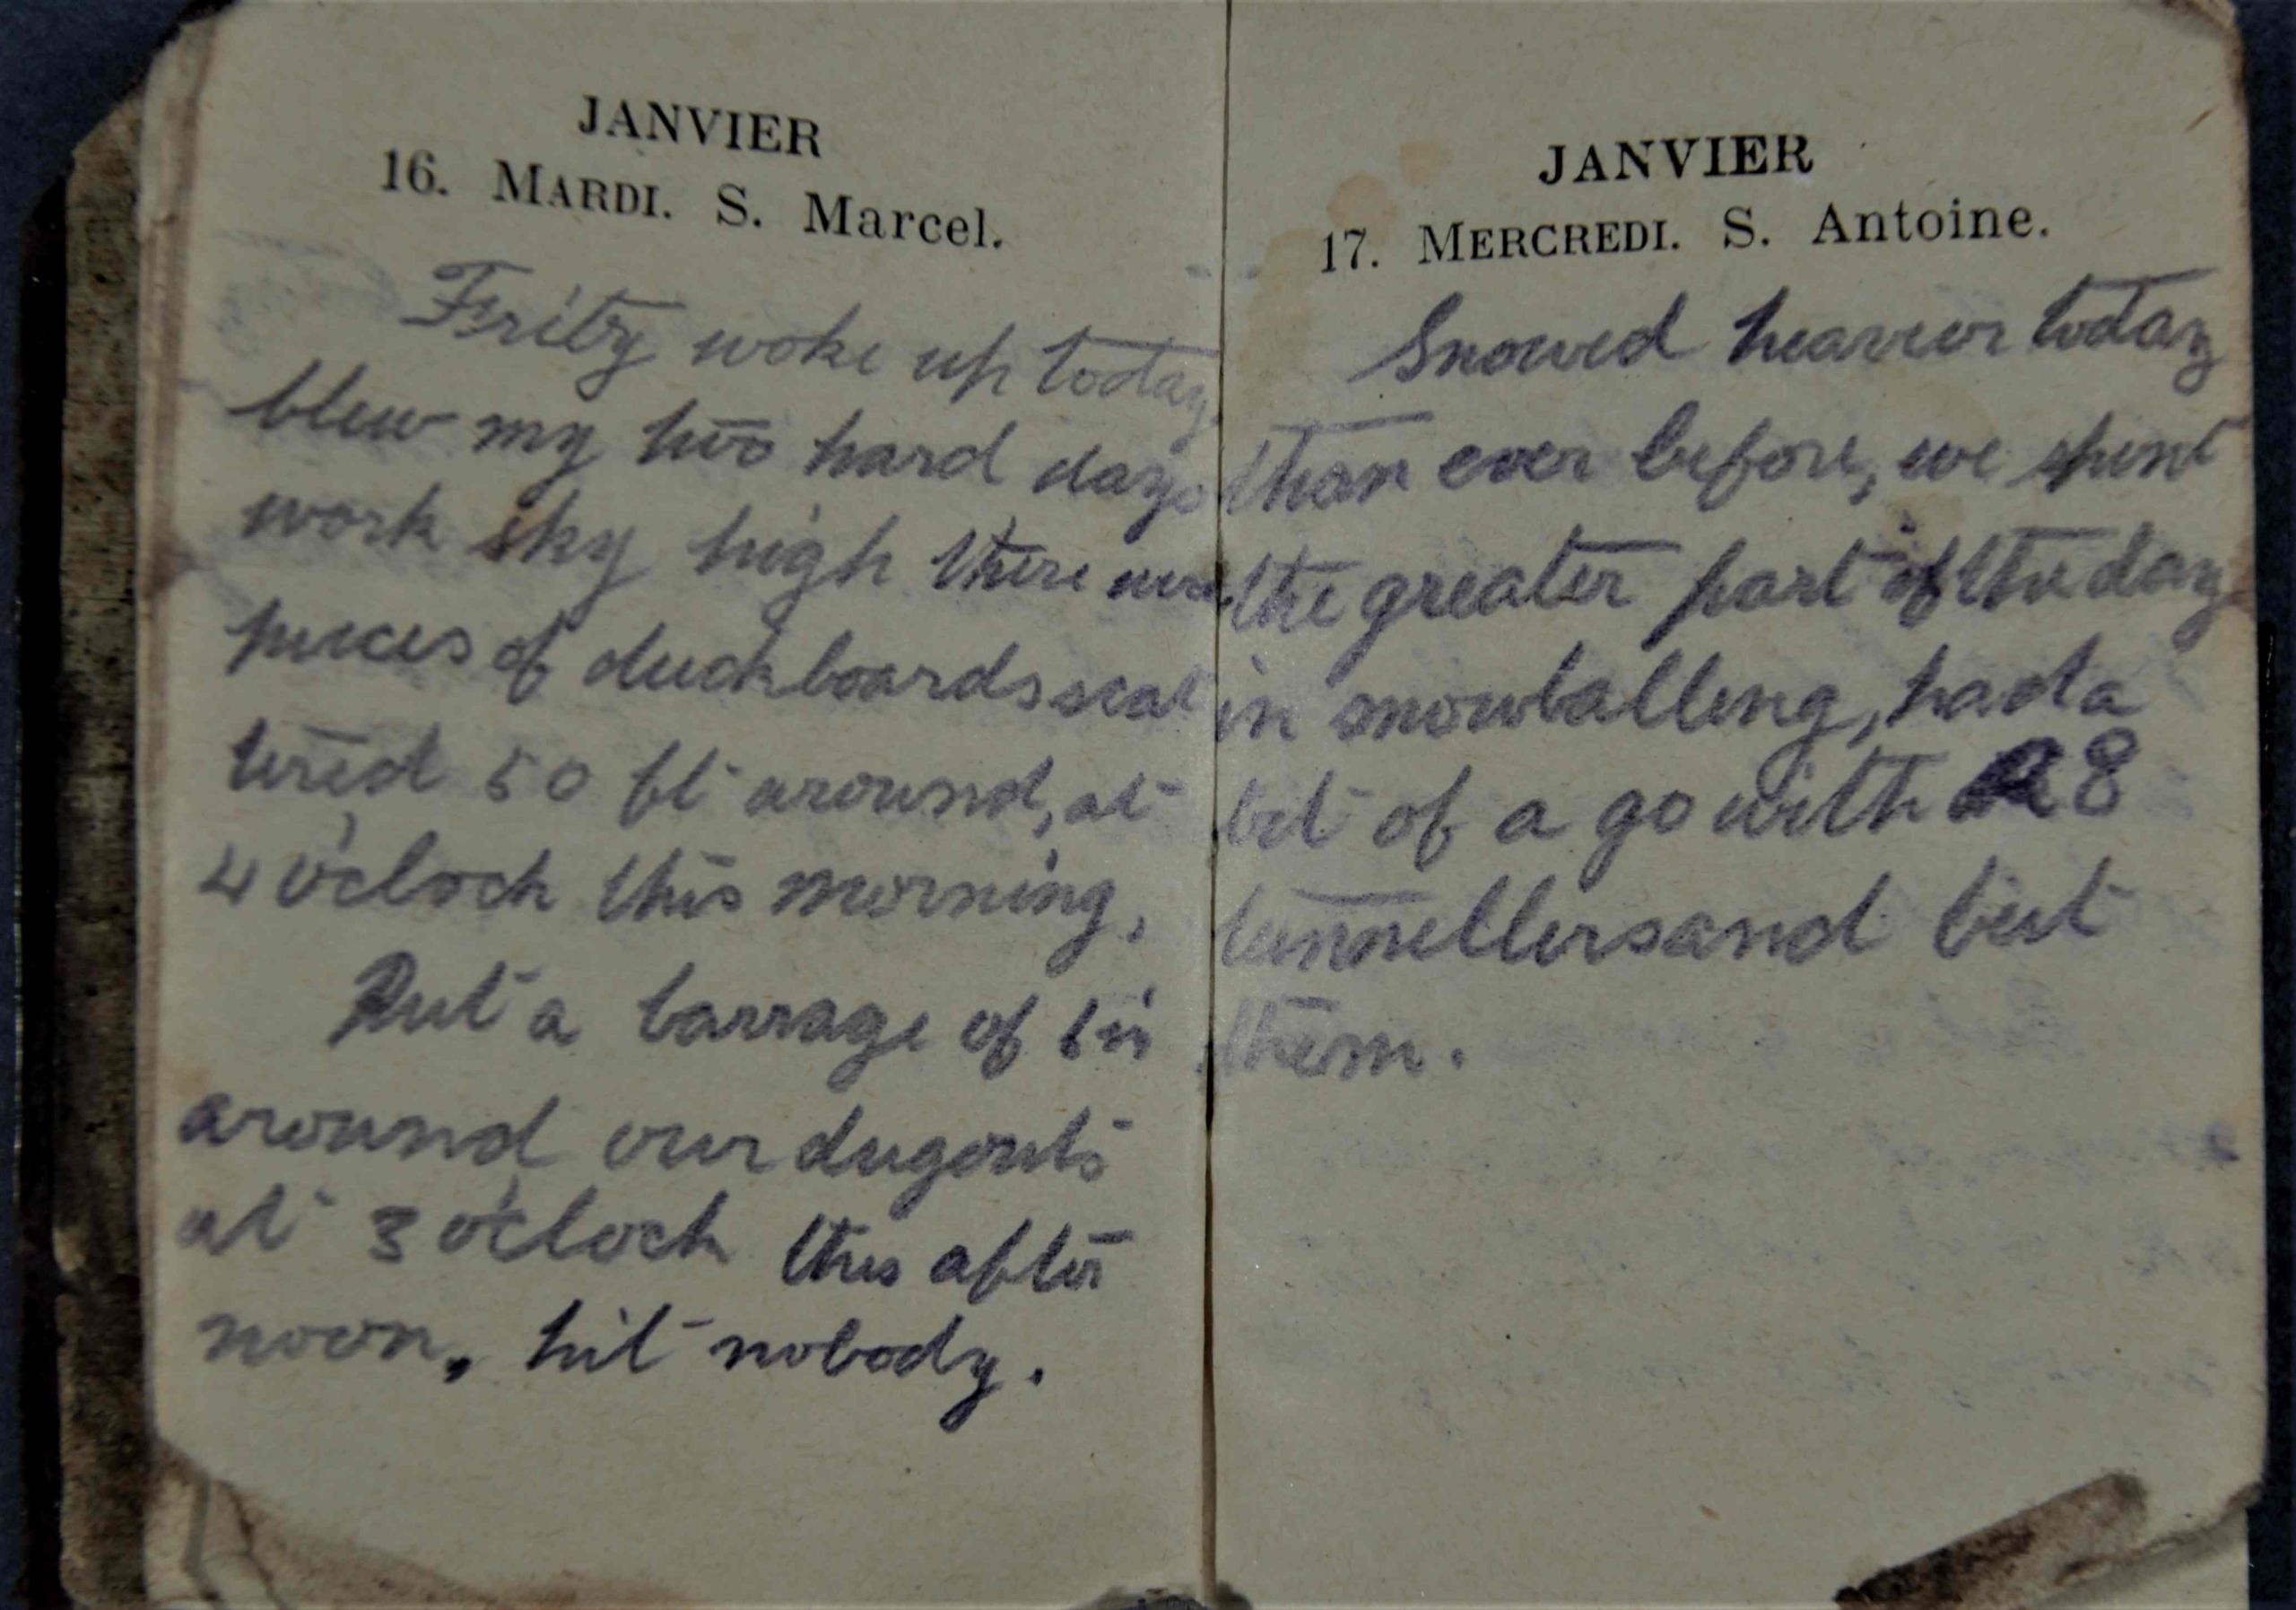 JANVIER
16. MARDI. S. Marcel.
Fritzy woke up today
blew my two hard days
work sky high there were
pieces of duckboards scat
tered 50 ft around, at
4 o'clock this morning,
Put a barrage of 6 in
around our dugouts
at 3 o'clock this after
noon, hit nobody.
JANVIER
17. MERCREDI. S. Antoine.
Snowed heavier today
than ever before, we spent
the greater part of the day
in snowballing, had a
bit of a go with 8
tunnellers and beat
them.